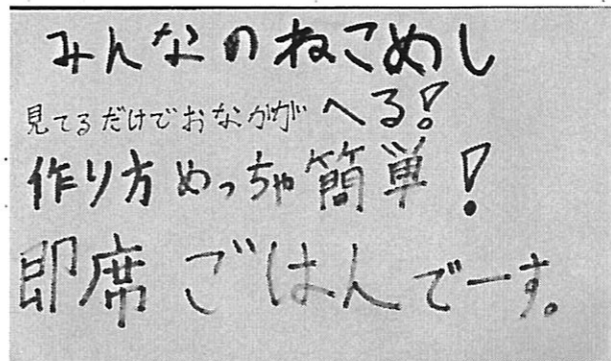 みんなのねこめし
見てるだけでおなかがへる!
作り方めっちゃ簡単!
即席ごはんでーす。